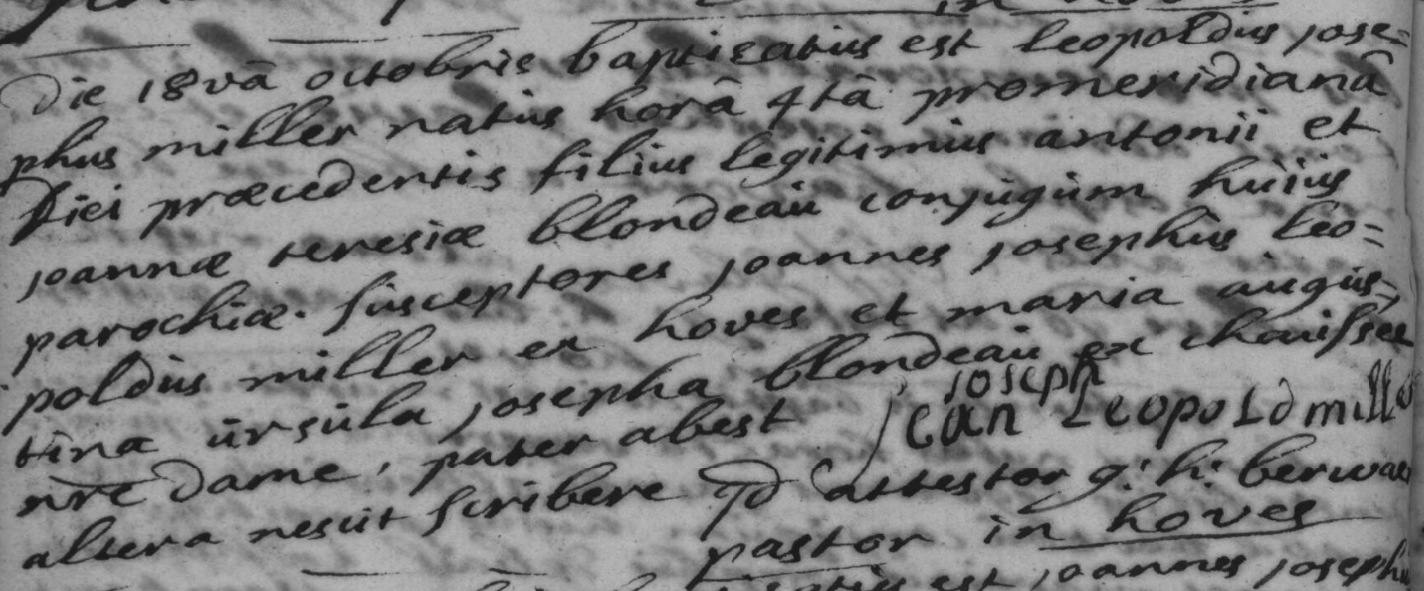 in hoves
Die 18vâ octobris baptizatus est leopoldus jose=
phus miller natus horâ 4tâ promeridianâ
diei præcedentis filius legitimus antonii et
joannæ teresiæ blondeau conjugum huius
parochiæ. susceptores joannes josephus leo=
poldus miller ex hoves et maria augus=
tina ursula josepha blondeau ex chaussée
nre dame, pater abest
joseph
jean Leopold mille
altera nescit scribere qd attestor g: h: berwar
pastor in hoves
est joannes joseph